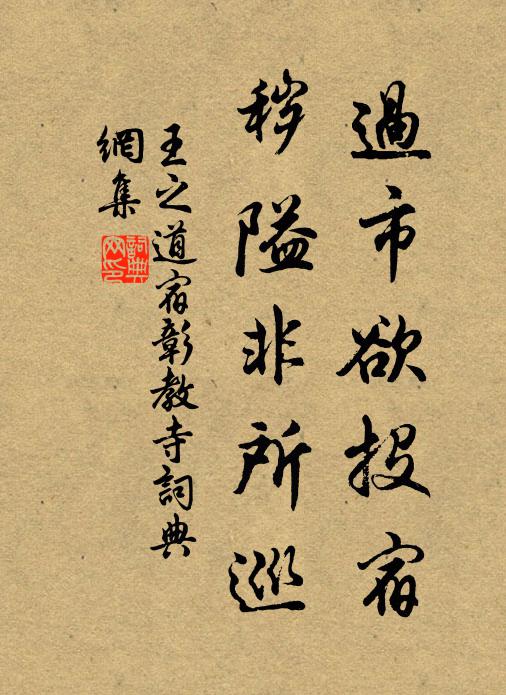 過市欲投宿
穢隘非所巡
王之道宿彰教寺詞典
網集
詞典
网印